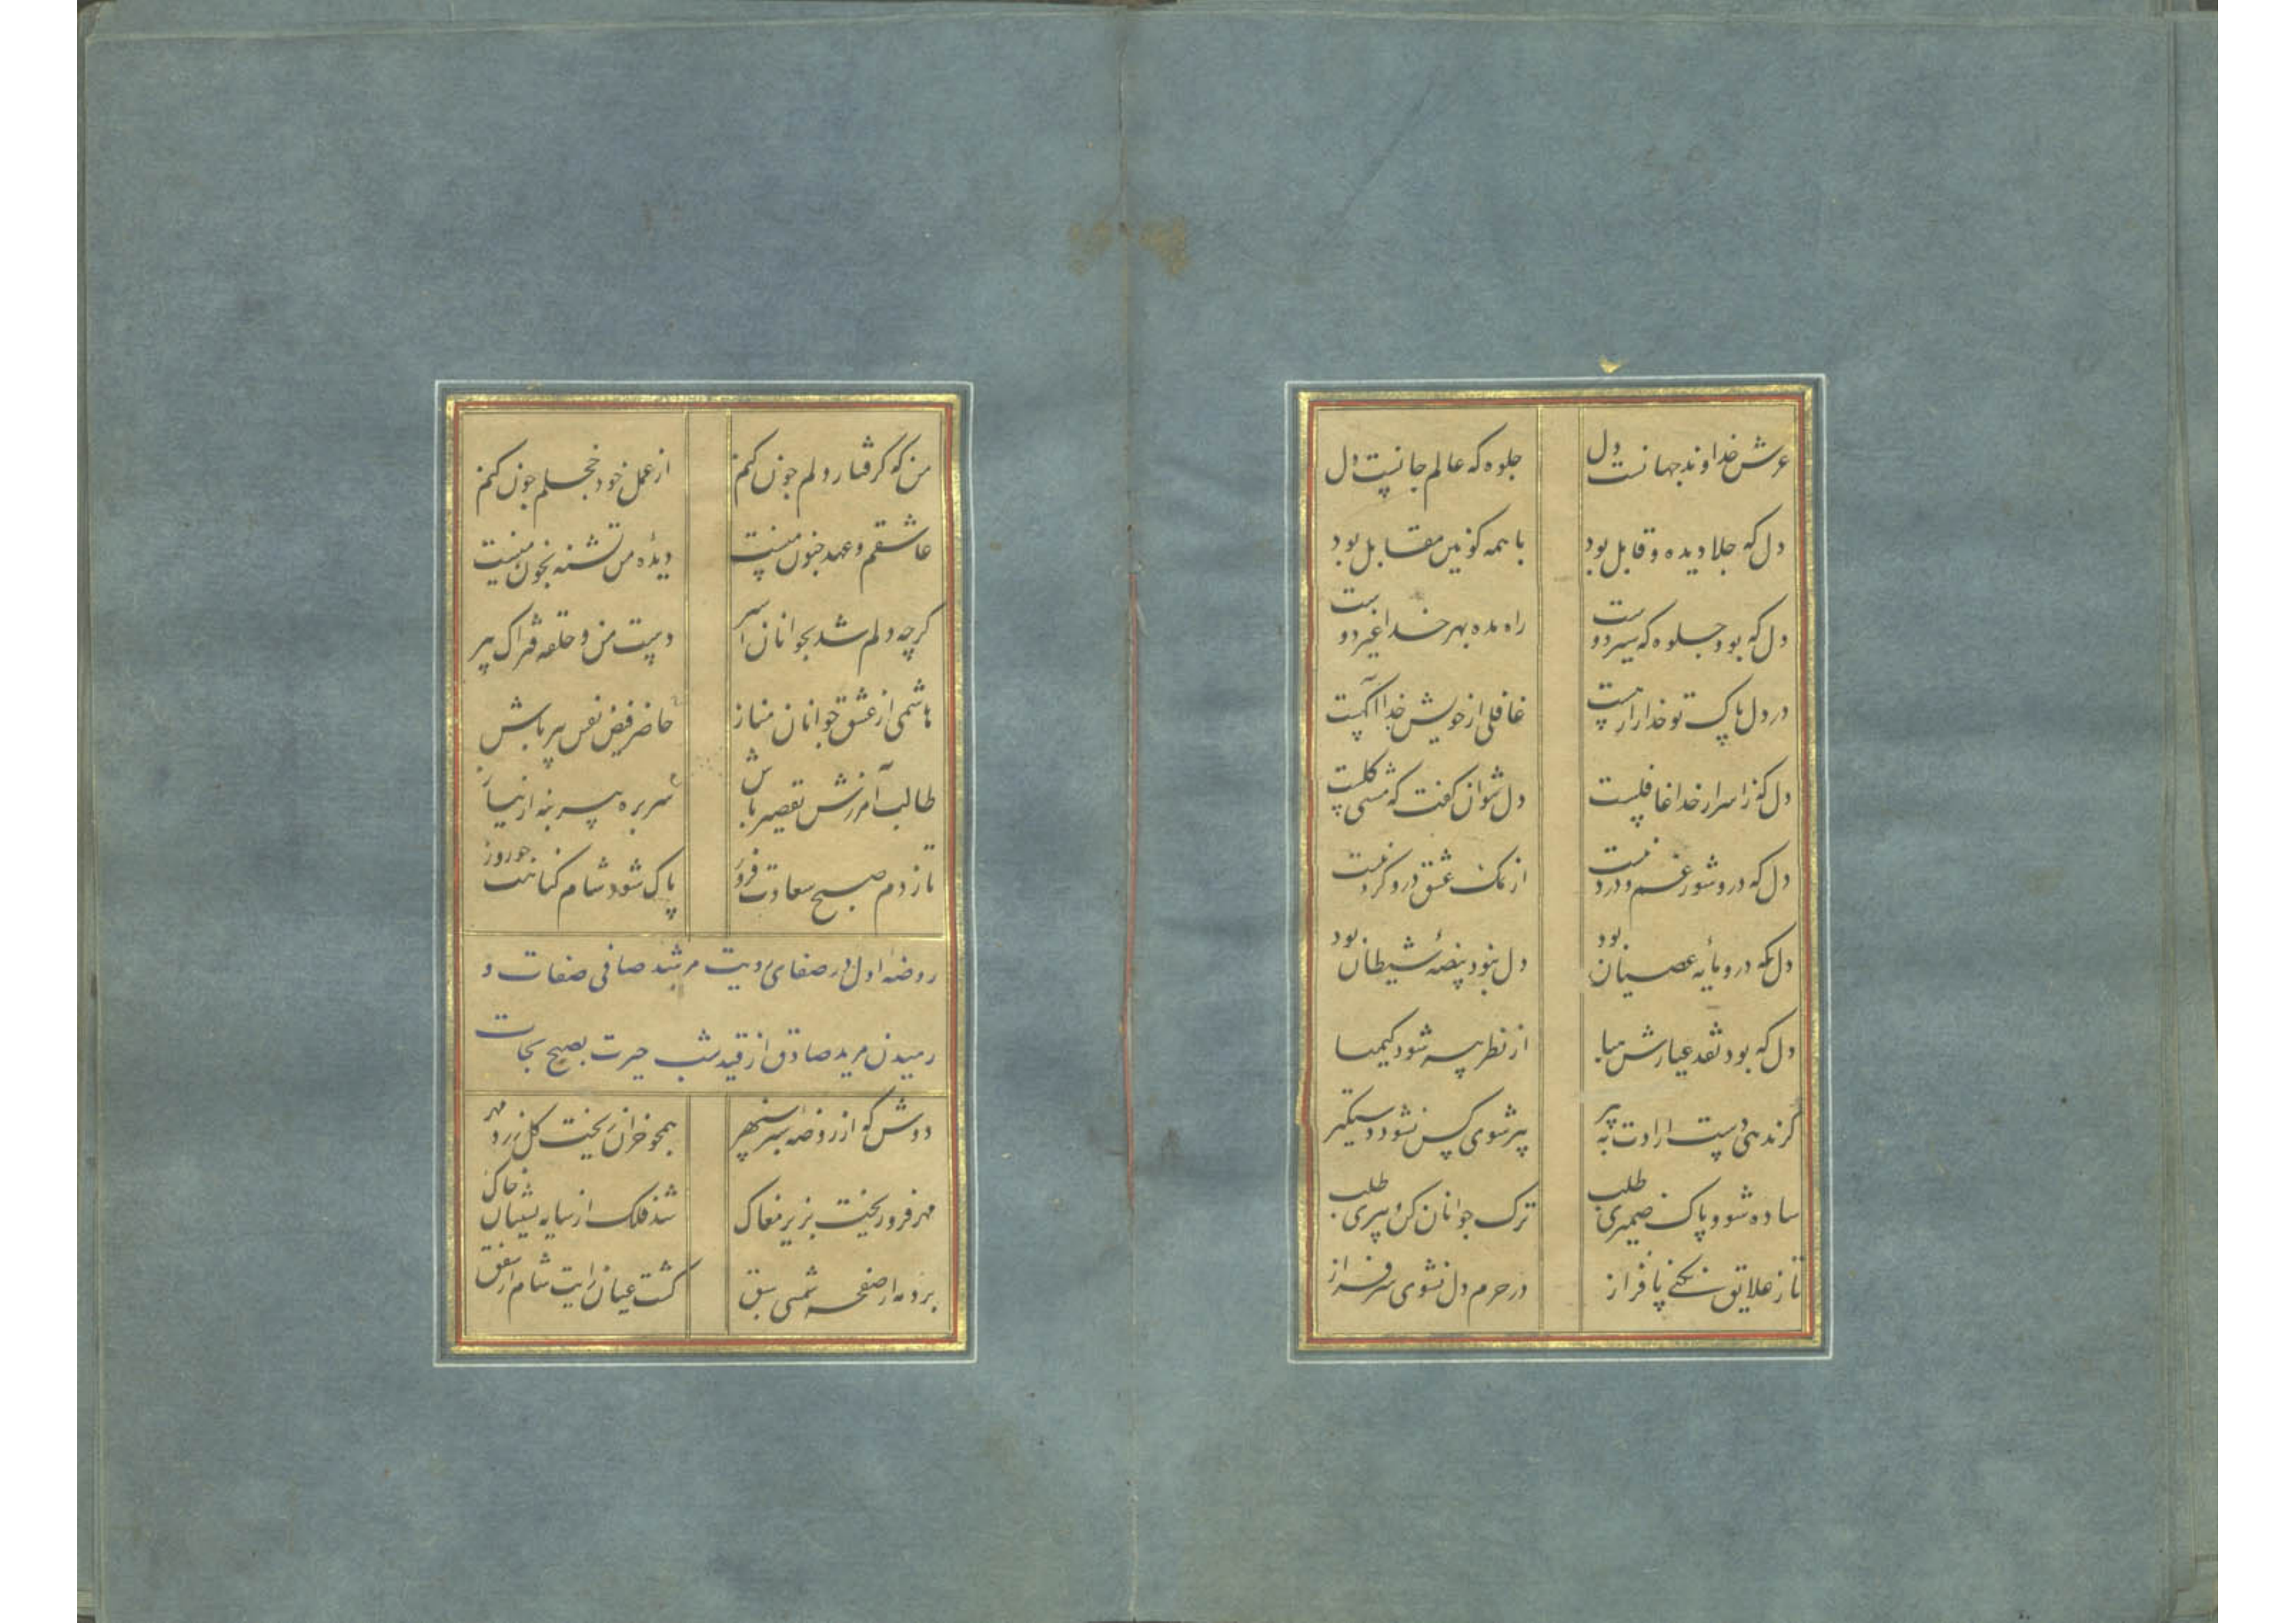 عرش خداوند جهانست دل جلوه که عالم جانست دل
دل که جلا دیده و قابل بود با همه کونین مقابل بود
دل که بود جلوه که سر دوست راه مده بهر خدا غیر دوست
در دل پاک تو خدارا رهست غافلی از خویش خدا آکهست
دل که ز اسرار خدا غافلست دل نتوان کفت که مشتی کلست
دل که درو شور غم و درد نیست از نمک عشق درو کرد نیست
دل که درو مایه عصیان بود دل نبود بیضه شیطان بود
دل که بود نقد عیارش از نظر پیر شود کیمیا
کر ندهی دست ارادت به پیر پیر شوی کس نشود دستکیر
ساده شو و پاک ضمیری طلب ترک جوانان کن و پیری طلب
تا ز علایق نکنی پا فراز در حرم دل نشوی سرفراز
من که کرفتار دلم چون کنم از عمل خود خجلم چون کنم
عاشقم و عهد جنون منست دیده من تشنه بخون منست
کرچه دلم شد بجوانان اسیر دست من و حلقه فتراک پیر
هاشمی از عشق جوانان مناز حاضر فیض نفس پیر باش
طالب آمرزش تقصیر باش سر بره پیر بنه از نیاز
تا ز دم صبح سعادت فروز پاک شود شام کناهت چو روز
روضه اول در صفای رویت مرشد صافی صفات و
رمیدن مرید صادق از قید شب حیرت بصبح نجات
دوش که از روضه سبز سپهر همچو خزان ریخت کل زرد مهر
مهر فرو ریخت بزیر مغاک شد فلک از سایه نشینان خاک
برد مه از صفحه شمسی سبق کشت عیان رایت شام از شفق